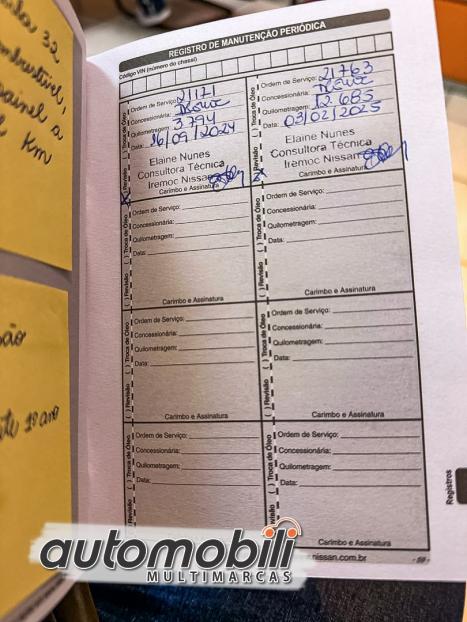 ida 32
ombustível,
painel a
Km
REGISTRO DE MANUTENÇÃO PERIÓDICA
Código VIN (número do chassi)
( ) Revisão ( ) Troca de Óleo
Ordem de Serviço: 21171
Concessionária:
Quilometragem: 3.794
Data: 16/09/2024
Elaine Nunes
Consultora Técnica
Iremoc Nissan
Carimbo e Assinatura
( ) Revisão ( ) Troca de Óleo
Ordem de Serviço: 21763
Concessionária:
Quilometragem: 12.685
Data: 03/02/2025
Elaine Nunes
Consultora Técnica
Iremoc Nissan
Carimbo e Assinatura
( ) Revisão ( ) Troca de Óleo
Ordem de Serviço:
Concessionária:
Quilometragem:
Data:
Carimbo e Assinatura
( ) Revisão ( ) Troca de Óleo
Ordem de Serviço:
Concessionária:
Quilometragem:
Data:
Carimbo e Assinatura
( ) Revisão ( ) Troca de Óleo
Ordem de Serviço:
Concessionária:
Quilometragem:
Data:
Carimbo e Assinatura
( ) Revisão ( ) Troca de Óleo
Ordem de Serviço:
Concessionária:
Quilometragem:
Data:
Carimbo e Assinatura
( ) Revisão ( ) Troca de Óleo
Ordem de Serviço:
Concessionária:
Quilometragem:
Data:
( ) Revisão ( ) Troca de Óleo
Ordem de Serviço:
Concessionária:
Quilometragem:
Data:
Carimbo e Assinatura
Registros
nissan.com.br
ão
1º ano
automobili
MULTIMARCAS